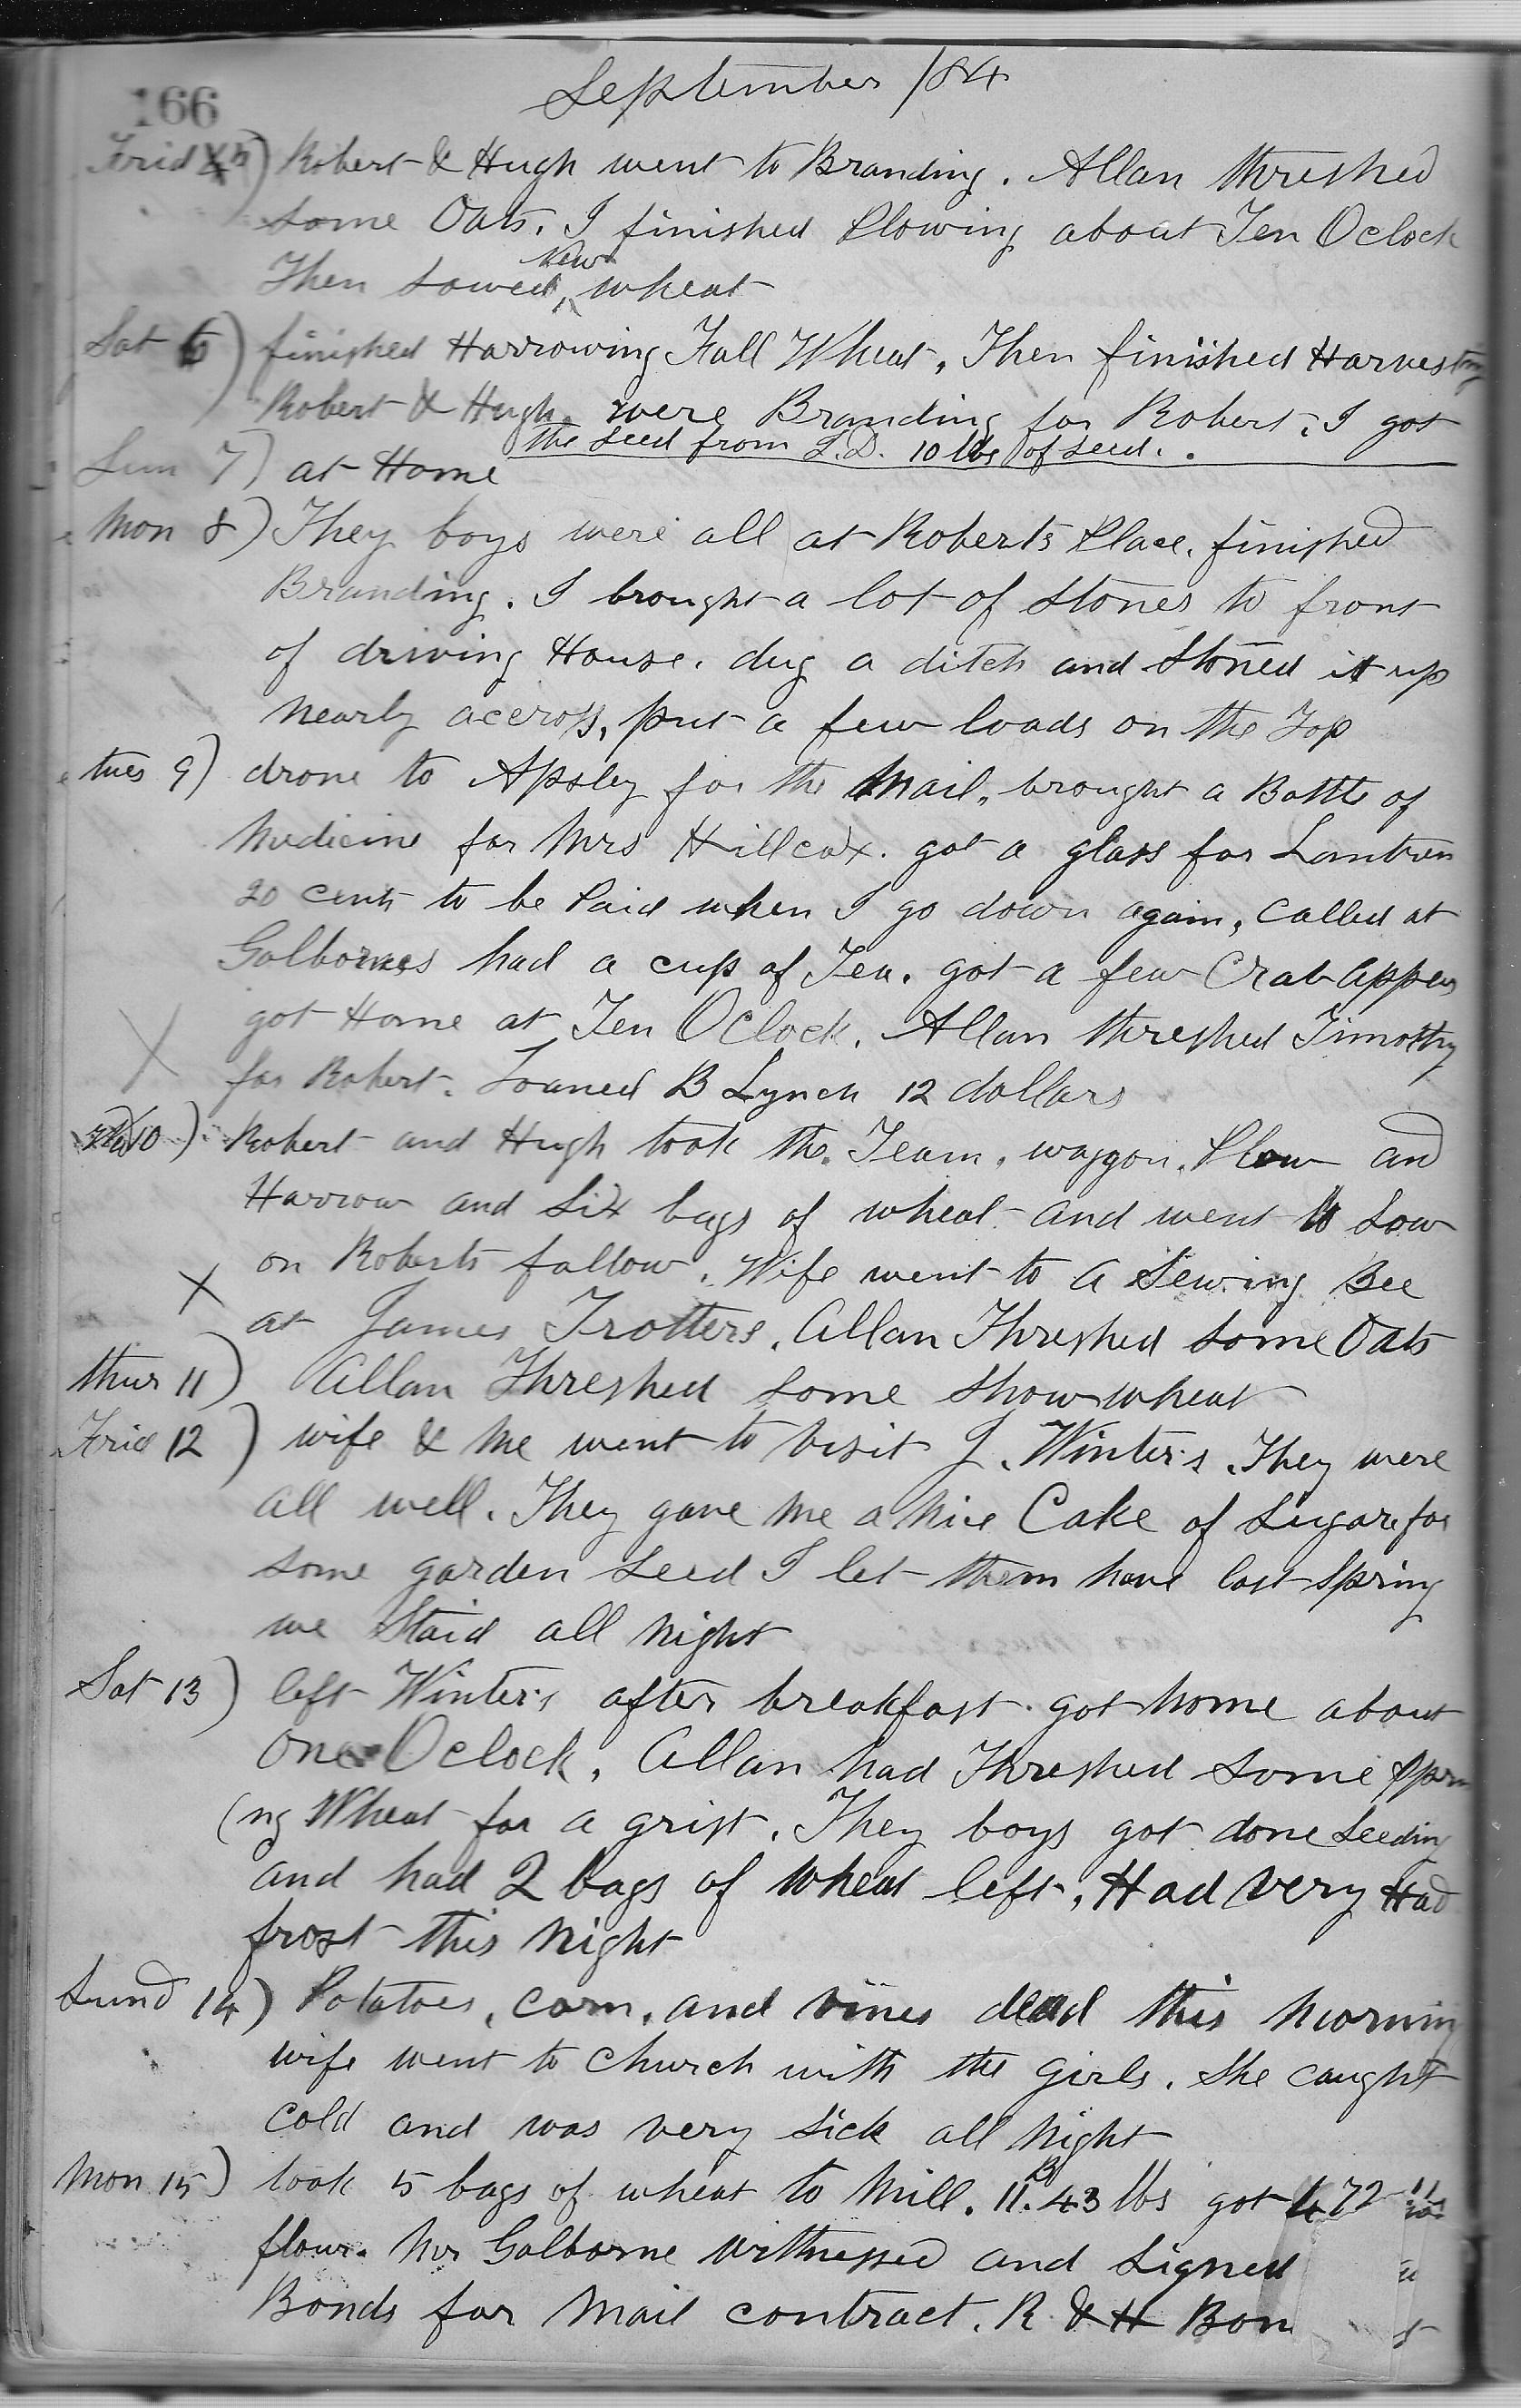 166
September /84
Frid 5) Robert & Hugh went to Branding. Allan threshed
some Oats. I finished Plowing about Ten Oclock
Then sowed New wheat
Sat 6) finished Harrowing Fall Wheat, Then finished Harvesting
Robert & Hugh were Branding for Robert. I got
the seed from L.D. 10 lbs of seed.
Sun 7) at Home
Mon 8) They boys were all at Roberts Place. finished
Branding. I brought a lot of Stones to front
of driving House. dug a ditch and Stoned it up
Nearly aceross, put a few loads on the Top
tues 9) drove to Apsley for the Mail, brought a Bottle of
Medicine for Mrs Hillcox. got a glass for Lantren
20 cents to be Paid when I go down again, Called at
Golbornes had a cup of Tea. got a few Crab Apples
got Home at Ten OClock. Allan threshed Timothy
for Robert. Loaned B Lynch 12 dollars
10) Robert and Hugh took the Team, waggon, Plow and
Harrow and Six bags of wheat and went to Sow
on Roberts fallow. Wife went to a Sewing Bee
at James Trotters. Allan Threshed some Oats
thur 11) Allan Threshed some Show wheat
Frid 12) wife & Me went to Visit J. Winter's. They were
all well. They gave Me a Nice Cake of Sugare for
some garden Seed I let them have last Spring
we Staid all Night
Sat 13) left Winter's after breakfast. got home about
One Oclock. Allan had Threshed some Spri
(ng Wheat for a grist. They boys got done Seeding
and had 2 bags of Wheat left. Had very Had
frost this Night
Sund 14) Potatoes, corn, and vines dead this Morning
wife went to Church with the girls. She caught
cold and was very sick all Night
Mon 15) took 5 bags of wheat to Mill. 11 B 43 lbs got 472
flour. Mr Golborne Wittnessed and Signed
Bonds for Mail contract. R & H Bon